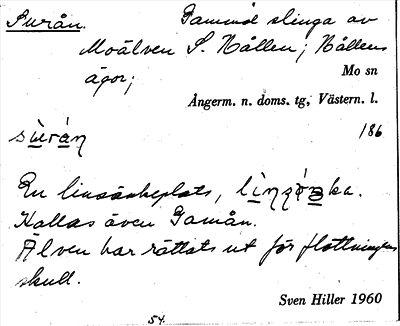 Surån. Gammal slinga av
Moälven S. Nållen; Nållens
ägor;
Mo sn
Ångerm. n. doms. tg, Västern. l.
186
En linsänkeplats,
Kallas även Gamån.
Älven har rättats ut för flottningens
skull.
Sven Hiller 1960
54.